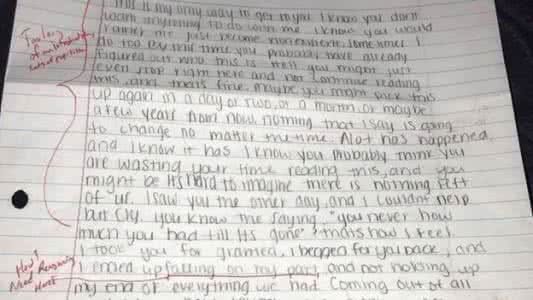 This is my only way to get to you I know you don't
want anything to do with me I know you would
rather me just become nonexistent, sometimes I
do too. By this time you probably have already
figured out who this is. Hell you might just
even stop right here and not continue reading
this, and that's fine. maybe you might pick this
up again in a day or two, or a month, or maybe
a few years from now, nothing that I say is going
to change no matter the time. Alot has happened
and I know it has I know you probably think you
are wasting your time reading this, and you
might be. Its hard to imagine there is nothing left
of "us. I saw you the other day, and I couldnt help
but cry. you know the saying, "you never how
much you had till its gone" thats how I feel.
I took you for granted, I begged for you back, and
I ended up falling on my part, and not holding up
my end of everything we had. Coming out of all
of
lots of repetition
How?
Reasoning
Need